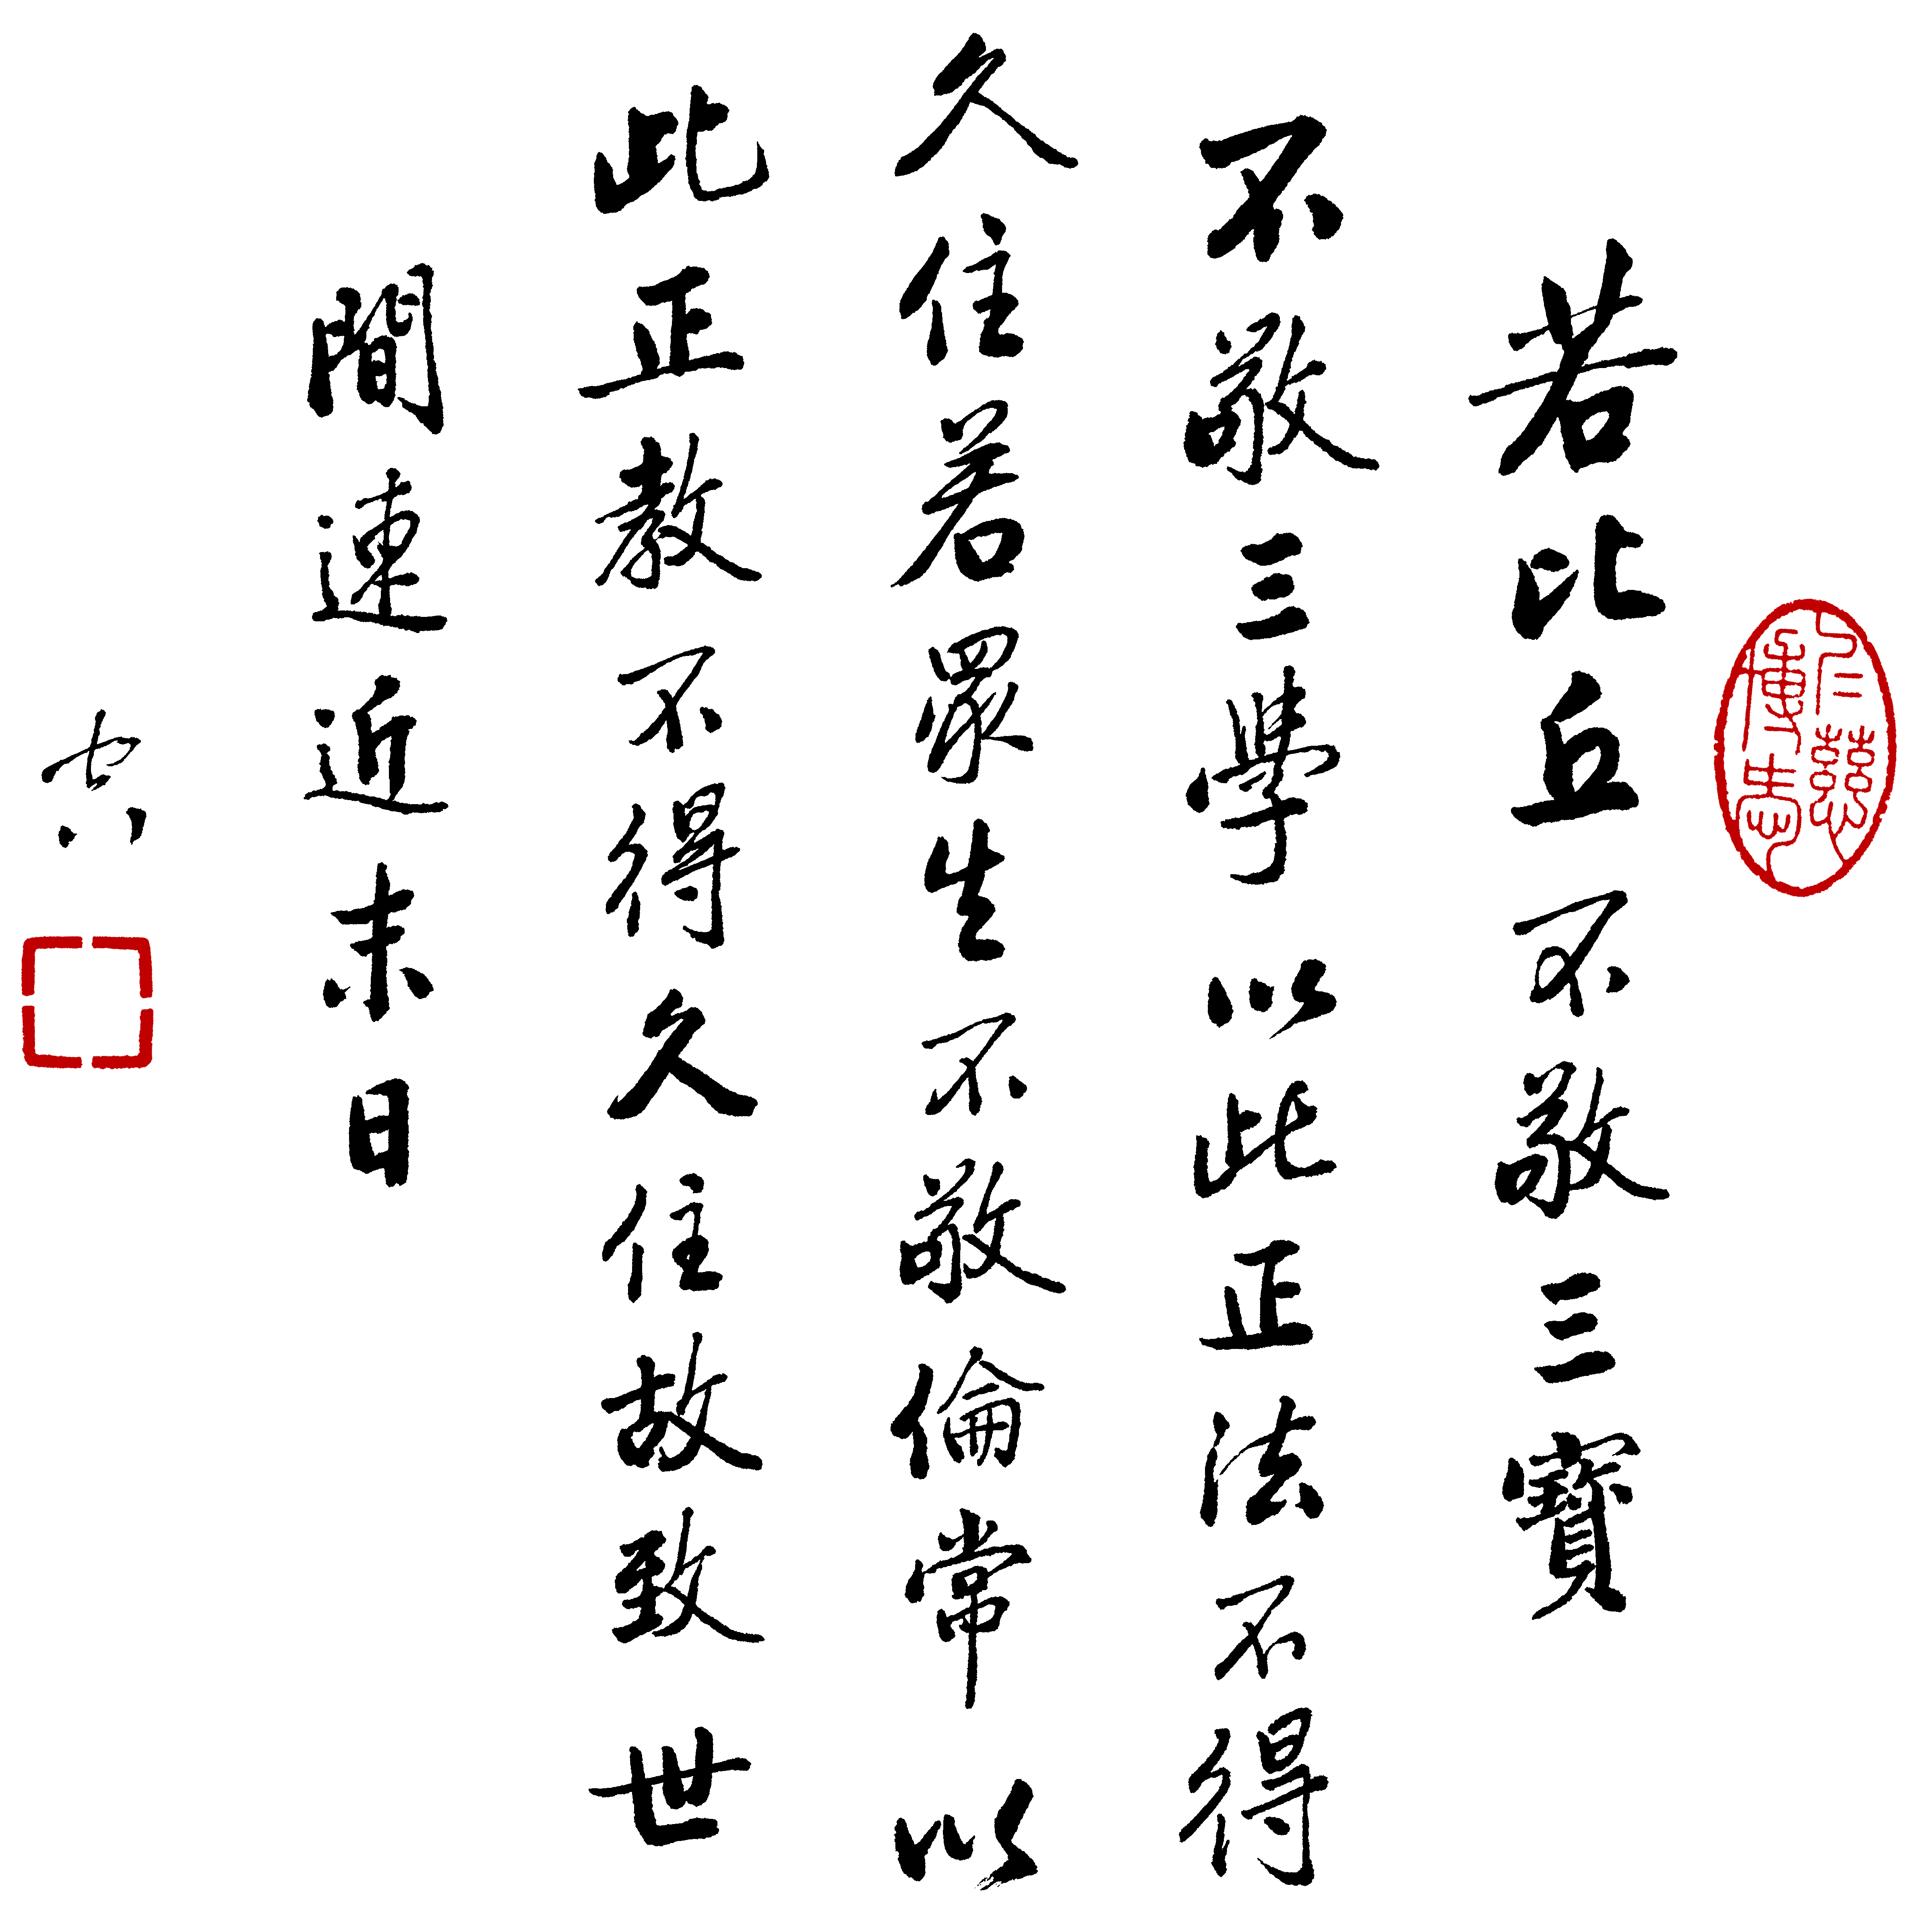 若比丘不敬三寶
不敬三學以此正法不得
久住若眾生不敬倫常以
此正教不得久住故致世
間速近末日